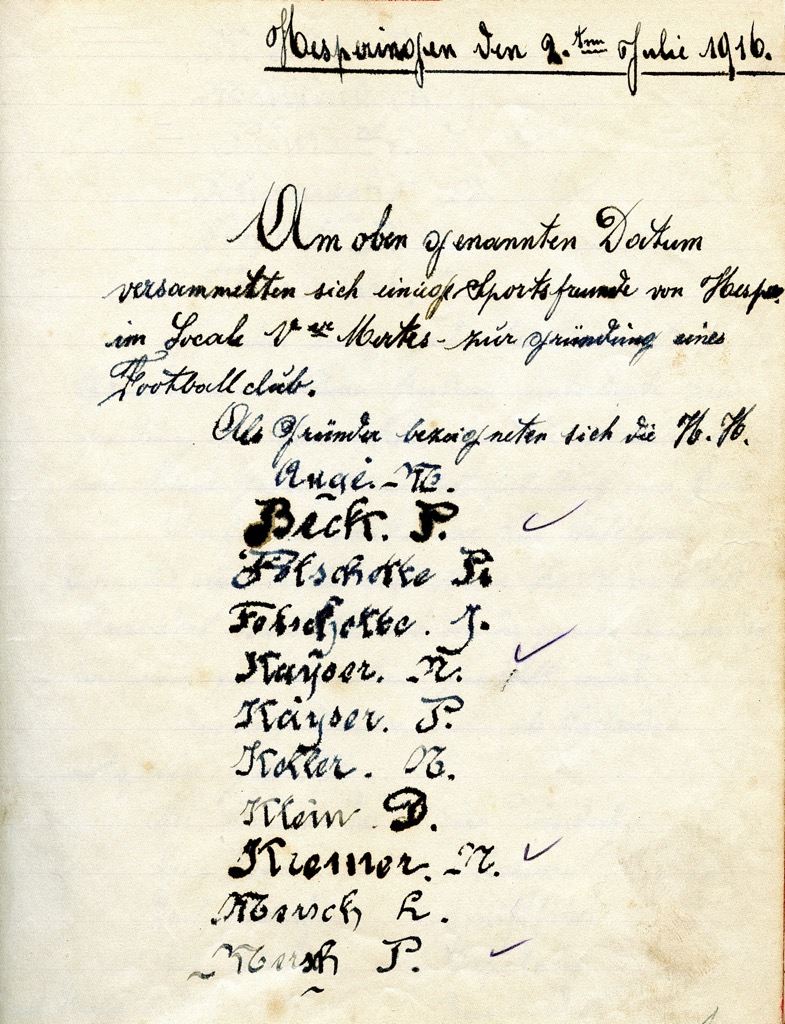 Hesperingen den 2.ten Julie 1916.
Am oben genannten Datum
versammelten sich einige Sportsfreunde von Hespe.
im Locale Vve Mertes - zur gründung eines
Football club.
Als Gründer bezeigneten sich die H. H.
Angé. M.
Beck. P.
Felschette P.
Felschette. J.
Kayser. N.
Kayser. P.
Koller. N.
Klein D.
Kremer. N.
Mersch L.
Mersch P.